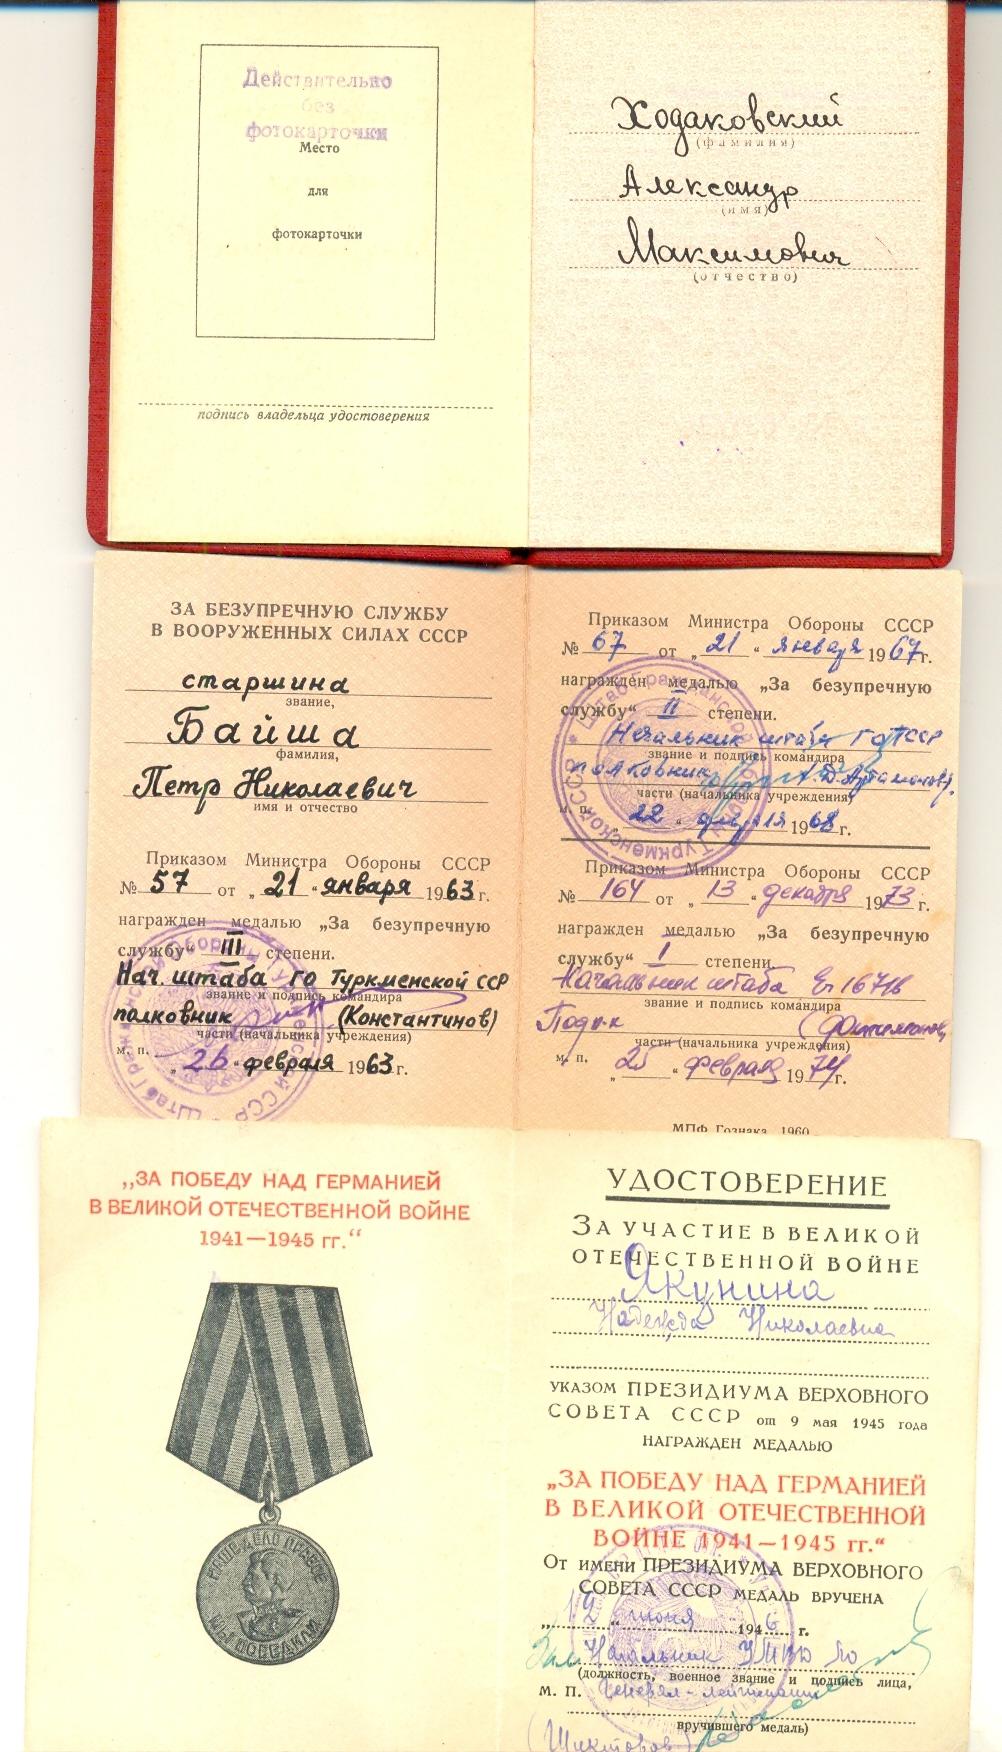 Действительно
без
фотокарточки
Место
для
фотокарточки
подпись владельца удостоверения
Ходаковский
(фамилия)
Александр
(имя)
Максимович
(отчество)
ЗА БЕЗУПРЕЧНУЮ СЛУЖБУ
В ВООРУЖЕННЫХ СИЛАХ СССР
старшина
звание,
Байша
фамилия,
Петр Николаевич
имя и отчество
Приказом Министра Обороны СССР
№ 57 от „21“ января 1963 г.
награжден медалью „За безупречную
службу“ III степени.
Нач. штаба ГО Туркменской ССР
звание и подпись командира
полковник (Константинов)
части (начальника учреждения)
м. п.
„26“ февраля 1963 г.
Приказом Министра Обороны СССР
№ 67 от „21“ января 1967 г.
награжден медалью „За безупречную
службу“ II степени.
Начальник штаба ГО ТССР
звание и подпись командира
полковник
части (начальника учреждения)
м. п.
„22“ февраля 1968 г.
Приказом Министра Обороны СССР
№ 164 от „13“ декабря 1973 г.
награжден медалью „За безупречную
службу“ I степени.
Начальник штаба
звание и подпись командира
Подп-к
части (начальника учреждения)
м. п.
„25“ февраля 1974 г.
МПФ Гознака. 1960.
„ЗА ПОБЕДУ НАД ГЕРМАНИЕЙ
В ВЕЛИКОЙ ОТЕЧЕСТВЕННОЙ ВОЙНЕ
1941—1945 гг.“
НАШЕ ДЕЛО ПРАВОЕ
МЫ ПОБЕДИЛИ
УДОСТОВЕРЕНИЕ
ЗА УЧАСТИЕ В ВЕЛИКОЙ
ОТЕЧЕСТВЕННОЙ ВОЙНЕ
Якунина
Надежда Николаевна
УКАЗОМ ПРЕЗИДИУМА ВЕРХОВНОГО
СОВЕТА СССР от 9 мая 1945 года
НАГРАЖДЕН МЕДАЛЬЮ
„ЗА ПОБЕДУ НАД ГЕРМАНИЕЙ
В ВЕЛИКОЙ ОТЕЧЕСТВЕННОЙ
ВОЙНЕ 1941—1945 гг.“
От имени ПРЕЗИДИУМА ВЕРХОВНОГО
СОВЕТА СССР МЕДАЛЬ ВРУЧЕНА
„12“ июня 1946 г.
Зам Начальник
(должность, военное звание и подпись лица,
М. П. Генерал-лейтенант
вручившего медаль)